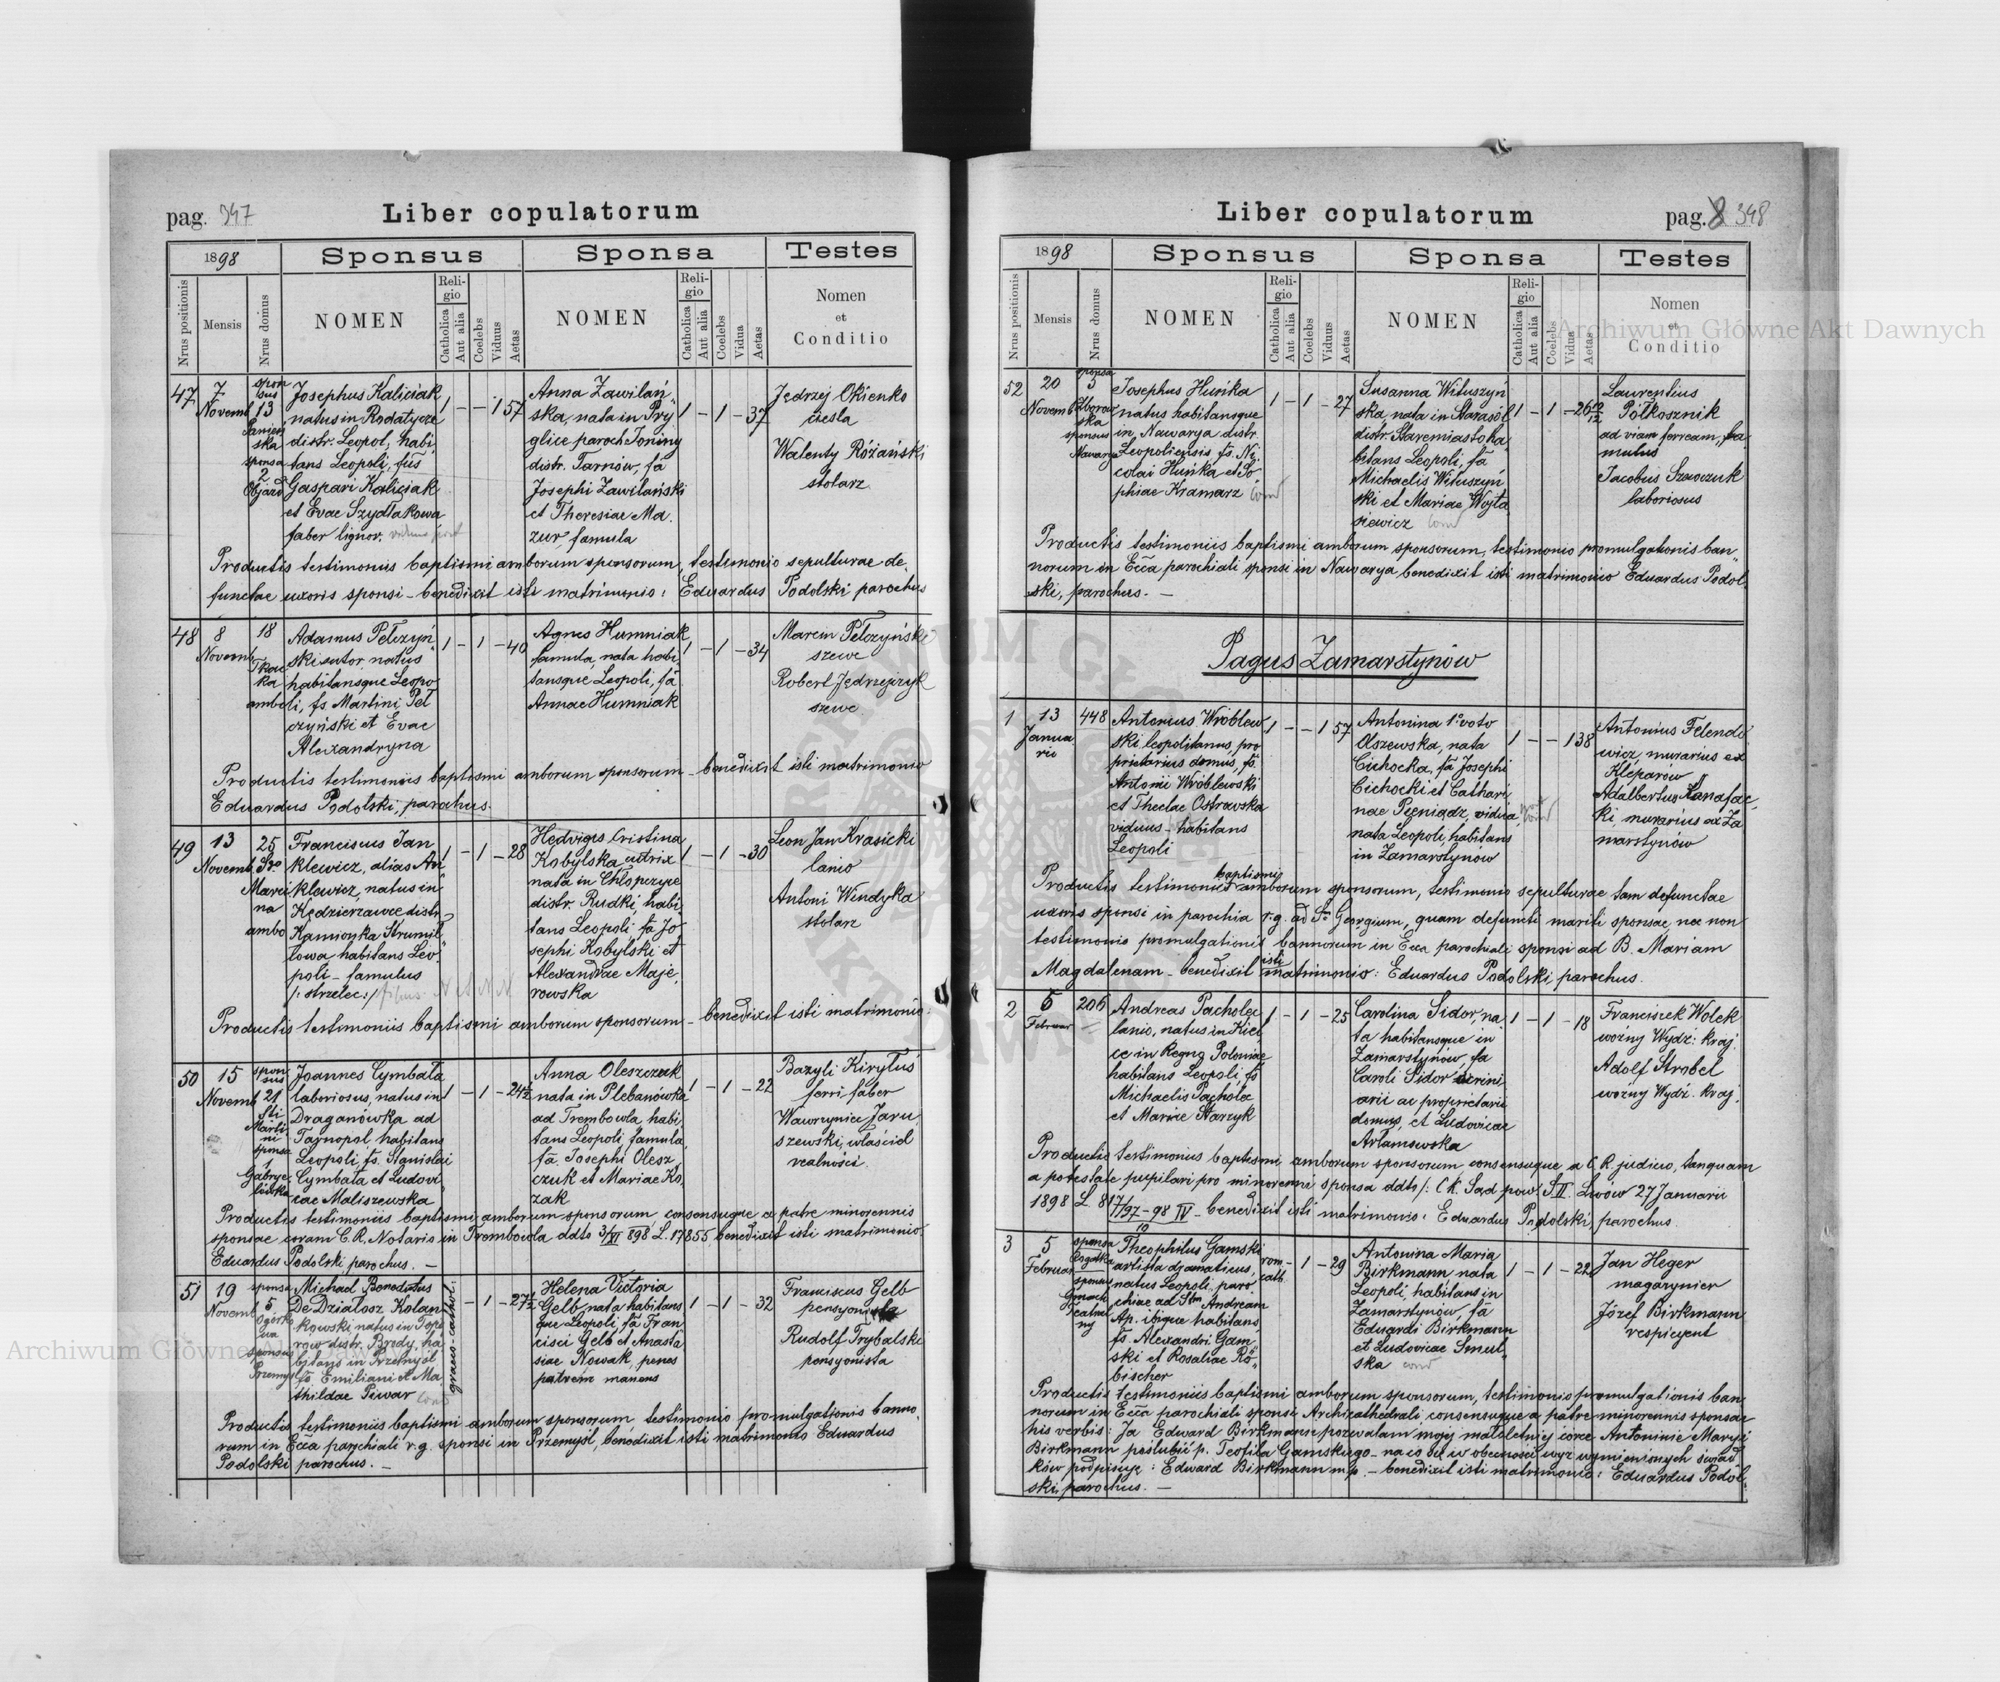 pag. 347
Liber copulatorum
1898
Sponsus
Sponsa
Testes
Nrus positionis
Mensis
Nrus domus
NOMEN
Religio
Catholica
Aut alia
Coelebs
Viduus
Aetas
NOMEN
Religio
Catholica
Aut alia
Coelebs
Vidua
Aetas
Nomen
et
Conditio
47
7
Novemb
sponsus
13
Panieńska
sponsa
2
Objazd
Josephus Kaliciak
natus in Rodatycze
distr. Leopol, habi
tans Leopoli, fus
Gaspari Kaliciak
et Evae Szydłakowa
faber lignor.
1 – – 1 57
Anna Zawilań
ska, nata in Ry
glice paroch Joniny
distr. Tarnów, fa
Josephi Zawilański
et Theresiae Ma
zur, famula
1 – 1 – 37
Jędrzej Okienko
cieśla
Walenty Różański
stolarz
Productis testimoniis baptismi amborum sponsorum, testimonio sepulturae de
functae uxoris sponsi – benedixit isti matrimonio: Eduardus Podolski parochus
48
8
Novemb
18
Tkac
ka
ambo
Adamus Pełczyń
ski sutor natus
habitansque Leopo
li, fs Martini Peł
czyński et Evae
Alexandryna
1 – 1 – 40
Agnes Humniak
famula, nata habi
tansque Leopoli, fa
Annae Humniak
1 – 1 – 34
Marcin Pełczyński
szewc
Robert Jędrzejczyk
szewc
Productis testimoniis baptismi amborum sponsorum – benedixit isti matrimonio
Eduardus Podolski, parochus.
49
13
Novemb
25
Sto
Marci
na
ambo
Franciscus Jan
klewicz, alias An
klewicz, natus in
Kędzierzawce distr
Kamionka Strumił
łowa habitans Leo
poli – famulus
/: strzelec :/
1 – 1 – 28
Hedviges Cristina
Kobylska nutrix
nata in Chłopczyce
distr. Rudki, habi
tans Leopoli fa Jo
sephi Kobylski et
Alexandrae Maje
rowska
1 – 1 – 30
Leon Jan Krasicki
lanio
Antoni Windyka
stolarz
Productis testimoniis baptismi amborum sponsorum – benedixit isti matrimonio:
50
15
Novemb
sponsus
21
Sti
Marti
ni
sponsa
Gabrye
lówka
Joannes Cymbała
laboriosus, natus in
Draganówka ad
Tarnopol habitans
Leopoli, fs. Stanislai
Cymbała et Ludovi
cae Maliszewska
1 – 1 – 24½
Anna Oleszczuk
nata in Plebanówka
ad Trembowla, habi
tans Leopoli, famula,
fa. Josephi Olesz
czuk et Mariae Ko
zak
1 – 1 – 22
Bazyli Kiryluś
ferri, faber
Wawrzyniec Jaru
szewski, właścicl
realności.
Productis testimoniis baptismi amborum sponsorum, consensuque a patre minorennis
sponsae coram C.R. Notario in Trembowla ddto 3/XI 898 L. 17855, benedixit isti matrimonio
Eduardus Podolski, parochus. –
51
19
Novemb
sponsa
5
Ogórko
wa
sponsus
Przemyśl
Michael Benedictus
De Działosz Kolan
kowski natus in Topo
row distr. Brody, ha
bitans in Przemyśl
fs Emiliani et Ma
thildae Piwar
graeco-cathol:
– 1 – 27½
Helena Victoria
Gelb, nata habitans
que Leopoli fa Fran
cisci Gelb et Anasta
siae Nowak, penes
patrem manens
1 – 1 – 32
Franciscus Gelb
pensyonista
Rudolf Trybalski
pensyonista
Productis testimoniis baptismi amborum sponsorum, testimonio promulgationis banno
rum in Ecca parochiali r.g. sponsi in Przemyśl, benedixit isti matrimonio Eduardus
Podolski parochus. –
Liber copulatorum
pag. 348
1898
Sponsus
Sponsa
Testes
Nrus positionis
Mensis
Nrus domus
NOMEN
Religio
Catholica
Aut alia
Coelebs
Viduus
Aetas
NOMEN
Religio
Catholica
Aut alia
Coelebs
Vidua
Aetas
Nomen
et
Conditio
52
20
Novemb
sponsa
5
Zborow
ska
sponsus
Nawarya
Josephus Huńka
natus habitansque
in Nawarya distr.
Leopoliensis, fs. Ni
colai Huńka et So
phiae Kramarz
1 – 1 – 27
Susanna Wituszyń
ska, nata in Starasól
distr. Staremiasto ha
bitans Leopoli, fa
Michaelis Wituszyń
ski et Mariae Wojta
siewicz
1 – 1 – 26
Laurentius
Półkosznik
ad viam ferream, fa
mulus
Jacobus Szewczuk
laboriosus
Productis testimoniis baptismi amborum sponsorum, testimonio promulgationis ban
norum in Ecca parochiali sponsi in Nawarya, benedixit isti matrimonio Eduardus Podol
ski, parochus. –
Pagus Zamarstynów
1
13
Janua
rii
448
Antonius Wróblew
ski leopolitanus, pro
prietarius domus, fs
Antonii Wróblewski
et Theclae Ostrowska
viduus – habitans
Leopoli
1 – – 1 57
Antonina 1º voto
Olszewska, nata
Cichocka, fa Josephi
Cichocki et Cathari
nae Pieniądz, vidua,
nata Leopoli, habitans
in Zamarstynów
1 – – 1 38
Antonius Felendo
wicz, murarius ex
Kleparow
Adalbertus Kanafac
ki, murarius ex Za
marstynów
Productis testimoniis baptismi amborum sponsorum, testimonio sepulturae tam defunctae
uxoris sponsi in parochia r.g. ad S. Georgium, quam defuncti mariti sponsae, nec non
testimonio promulgationis bannorum in Ecca parochiali sponsi ad B. Mariam
Magdalenam – benedixit isti matrimonio: Eduardus Podolski, parochus.
2
6
Februar
206
Andreas Pacholec
lanio, natus in Kiel
ce in Regno Poloniae
habitans Leopoli, fs
Michaelis Pacholec
et Mariae Starzyk
1 – 1 – 25
Carolina Sidor, na
ta habitansque in
Zamarstynów, fa
Caroli Sidor
arii ac proprietarii
domus, et Ludovicae
Artamowska
1 – 1 – 18
Franciszek Wołek
woźny Wydz: kraj:
Adolf Strobel
woźny Wydz. kraj.
Productis testimoniis baptismi amborum sponsorum, consensuque a C.R. judicio, tanquam
a potestate pupilari pro minorenni sponsa ddto /: C.K. Sąd pow. S.II. Lwów 27 Januarii
1898 L. 817/97–98 IV – benedixit isti matrimonio: Eduardus Podolski, parochus.
10
3
5
Februar
sponsa
sponsus
Gmach
Teatral
ny
Theophilus Gamski
artista dramaticus,
natus Leopoli, paro
chiae ad Stm Andream
Ap. ibique habitans,
fs. Alexandri Gam
ski et Rosaliae Rö
bischer
rom–
cath.
1 – 29
Antonina Maria
Birkmann nata
Leopoli, habitans in
Zamarstynów, fa
Eduardi Birkmann
et Ludovicae Smul
ska
1 – 1 – 22
Jan Heger
magazynier
Józef Birkmann
respicyent
Productis testimoniis baptismi amborum sponsorum, testimonio promulgationis ban
norum in Ecca parochiali sponsi Archicathedrali, consensuque a patre minorennis sponsae
his verbis: Ja Edward Birkmann pozwalam mojej małoletniej córce Antoninie Maryi
Birkmann poślubić p. Teofila Gamskiego – na co się w obecności wyż wymienionych świad
ków podpisuję: Edward Birkmann mp. – benedixit isti matrimonio: Eduardus Podol
ski, parochus. –
Archiwum Główne Akt Dawnych
Archiwum Główne Akt Dawnych